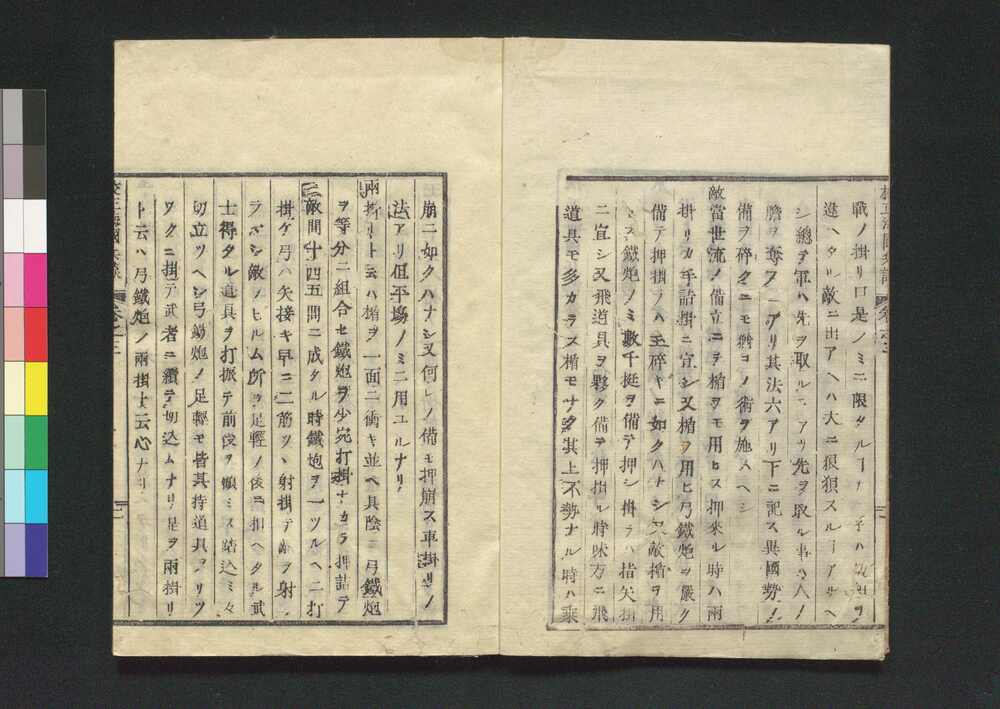 戰ノ掛リ口是ノミニ限タル
進ヘタル敵ニ出アヘハ大ニ狼狽スルヿアルヘ
シ總テ軍ハ先ヲ取ルニアリ先ヲ取ル事ハ人ノ
膽ヲ奪フニアリ其法六アリ下ニ記ス異國勢ノ
備ヲ碎クニモ猶コノ術ヲ施スヘシ
敵當世流ノ備立ニテ楯ヲモ用ヒス押來ル時ハ兩
掛リカ手詰掛ニ宜シ又楯ヲ用ヒ弓鐵炮ヲ嚴ク
備テ押掛ラハ玉碎キニ如クハナシ又敵楯ヲ用
ヒス鐵炮ノミ數千挺ヲ備テ押シ掛ラハ指矢掛
ニ宜シ又飛道具ヲ夥ク備テ押掛ル時味方ニ飛
道具モ多カラス楯モナク其上不勢ナル時ハ乘
崩ニ如クハナシ又何レノ備モ押崩ス車掛リノ
法アリ但平場ノミニ用ユルナリ
兩掛リト云ハ楯ヲ一面ニ衝キ並ヘ其陰ニ弓鐵炮
ヲ等分ニ組合セ鐵炮ヲ少宛打掛ナカラ押詰テ
敵間十四五間ニ成タル時鐵炮ヲ一ツルヘニ打
掛ケ弓ハ矢接キ早ニ二筋ツヽ射掛テ敵ヲ射
ラベシ敵ノヒルム所ヲ足輕ノ後ニ扣ヘタル武
士得タル道具ヲ打振テ前後ヲ顧ミス踏込ミ々
切立ツヘシ弓鐵炮ノ足輕モ皆其持道具ヲリツ
ワクニ掛テ武者ニ續テ切込ムナリ是ヲ兩掛リ
ト云ハ弓鐵炮ノ兩掛ト云心ナリ